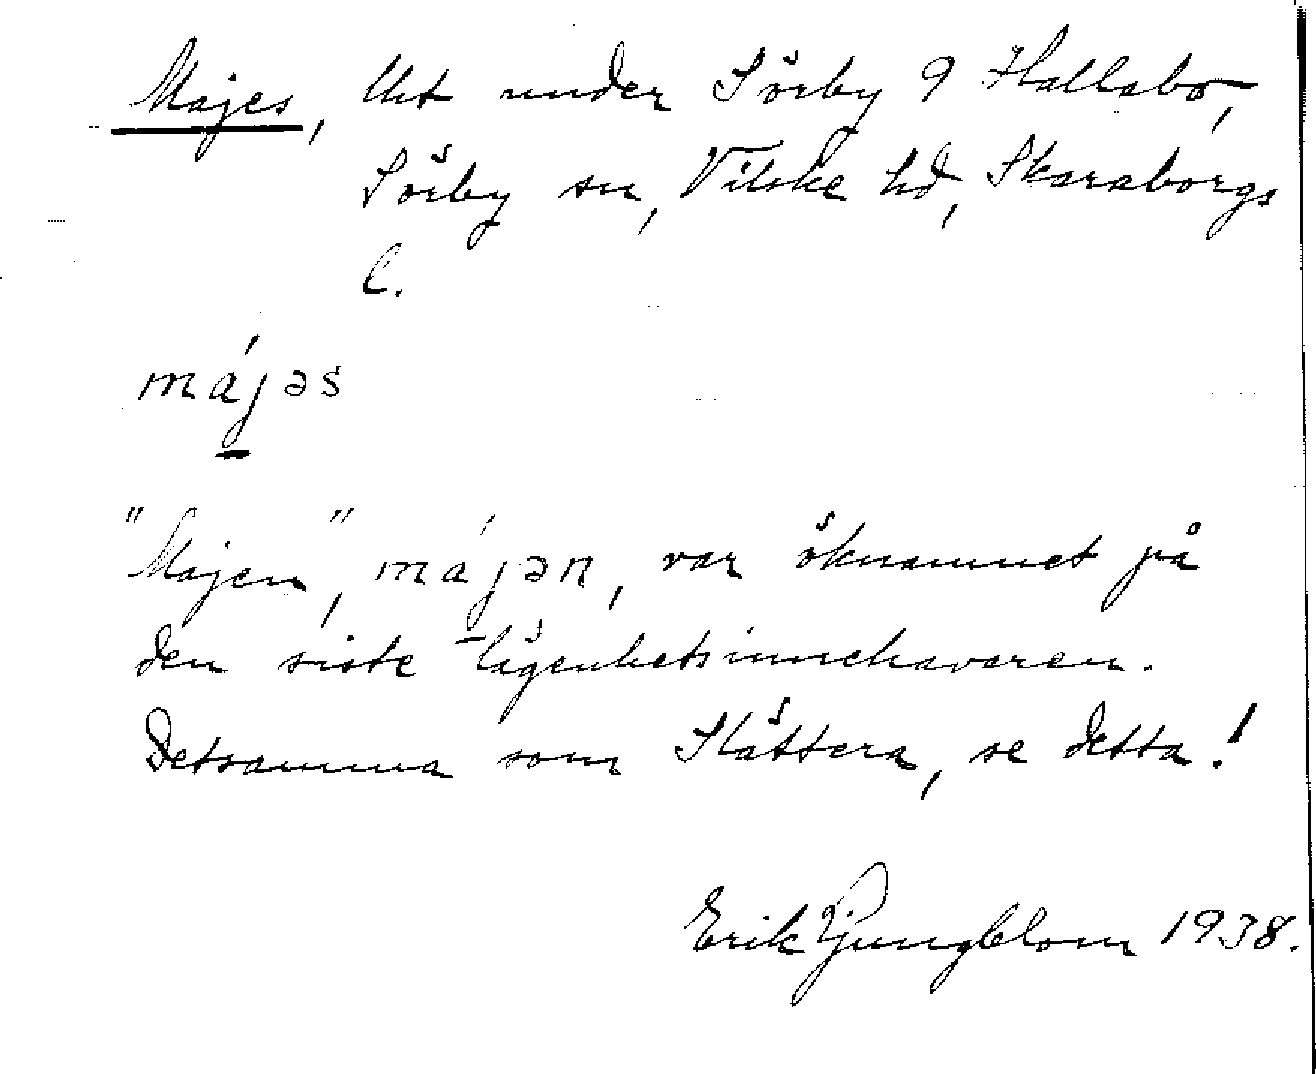 Majes, Utj under Sörby 9 Hallabo,
Sörby sn, Vilske hd, Skaraborgs
l.
májəs
"Majen", májən, var öknamnet på
den siste lägenhetsinnehavaren.
Detsamma som Slättera, se detta!
Erik Ljungblom 1938.